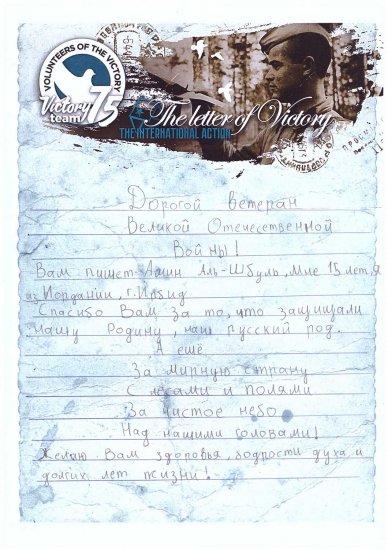 VOLUNTEERS OF THE VICTORY
Victory 75
team
The letter of Victory
THE INTERNATIONAL ACTION
Дорогой ветеран
Великой Отечественной
Войны!
Вам пишет Амин Аль-Шбуль, мне 15 лет, я
из Иордании, г. Ирбид
Спасибо Вам за то, что защищали
нашу Родину, наш русский род.
А ещё
За мирную страну
С лесами и полями
За чистое небо
Над нашими головами!
Желаю Вам здоровья, бодрости духа и
долгих лет жизни!